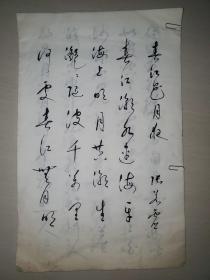 春江花月夜 张若虚
春江潮水连海平
海上明月共潮生
滟滟随波千万里
何处春江无月明